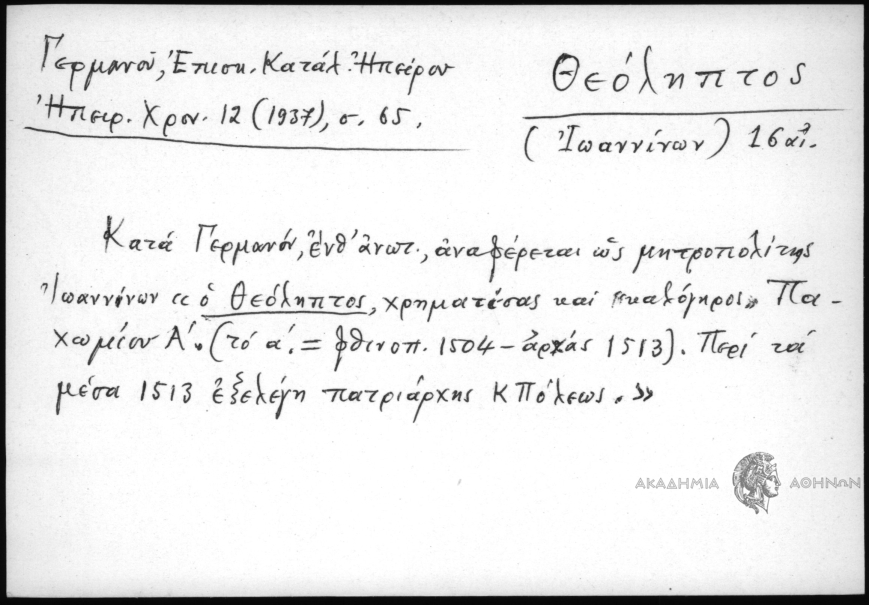 Γερμανοῦ, Ἐπισκ. Κατάλ. Ἠπείρου
Ἠπειρ. Χρον. 12 (1937), σ. 65.
Θεόληπτος
(Ἰωαννίνων) 16 αἰ.
Κατά Γερμανόν, ἔνθ' ἀνωτ., ἀναφέρεται ὡς μητροπολίτης
Ἰωαννίνων «ὁ Θεόληπτος, χρηματίσας καί «καλόγηρος» Πα-
χωμίου Α΄. (τό α΄. = φθινοπ. 1504 – ἀρχάς 1513). Περί τά
μέσα 1513 ἐξελέγη πατριάρχης ΚΠόλεως.»
ΑΚΑΔΗΜΙΑ ΑΘΗΝΩΝ